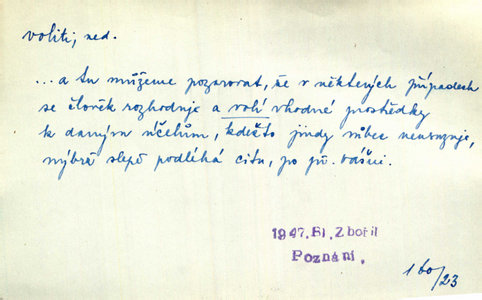 voliti, ned.
...a tu můžeme pozorovat, že v některých případech
se člověk rozhoduje a volí vhodné prostředky
k daným účelům, kdežto jindy vůbec neuvažuje,
nýbrž slepě podléhá citu, po př. vášni.
1947. Bl. Zbořil
Poznání.
160/23